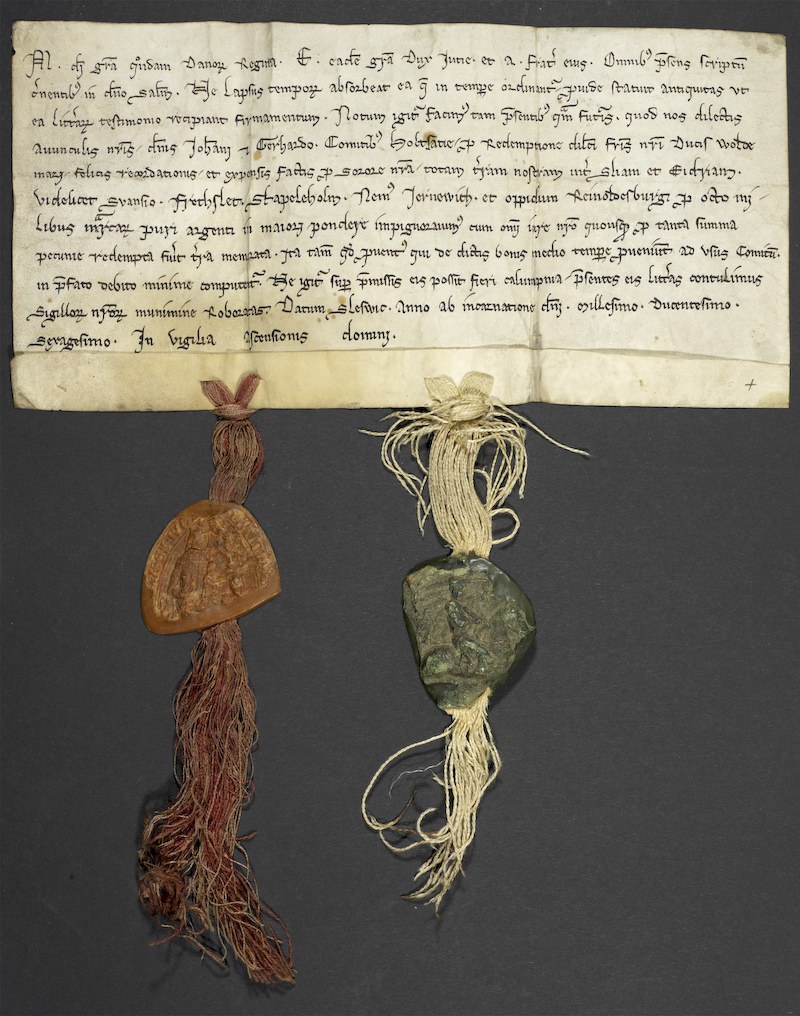 M. di grã quondam Danoꝝ Regina. E. eadē grã Dux Jutie. et A. Frat̃ eius. Omnibꝰ p̃sens scriptū
c̃nentibꝰ in dño Salm̃. Ne Lapsus tempoꝝ absorbeat ea q̃ in tempe ordinant̃ ꝓuide statuit antiquitas ut
ea litt̃aꝝ testimonio recipiant firmamentum. Notum igit̃ facimꝰ tam p̃sentibꝰ qm̃ futis̃. quod nos dilectis
Avunculis nr̃is. dñis Johãni ⁊ Gerhardo. Comitibꝰ Holtsatie. ꝓ Redemptione dilc̃i fr̃is nr̃i Ducis Wolde
mari felicis recordationis. et expensis factis ꝓ Sorore nr̃a. totam t̃ram nostram int̃ Sliam et Eidriam.
Videlicet Svansio. Frethslet. Stapeleholm. Nemꝰ Jernewith. et oppidum Reinoldesburg. ꝓ octo mi-
libus mr̃caꝝ puri argenti in maiori pondere inpignorauimꝰ cum om̃i iure nr̃o quousqꝫ ꝓ tanta summa
pecunie redempta fũit t̃ra memorata. Ita tam̃ qd̃ ꝓuentꝰ qui de dictis bonis medio tempe ꝓueniũt ad usus Comitũ.
in p̃fato debito minime computent̃. Ne igit̃ sup̃ p̃missis eis possit fieri calumpnia. p̃sentes eis litt̃as contulimus
Sigilloꝝ nr̃oꝝ munimine Roboratas. Datum Sleswic. Anno ab incarnatione dñi. Millesimo. Ducentesimo.
Sexagesimo. In vigilia Ascensionis domini.